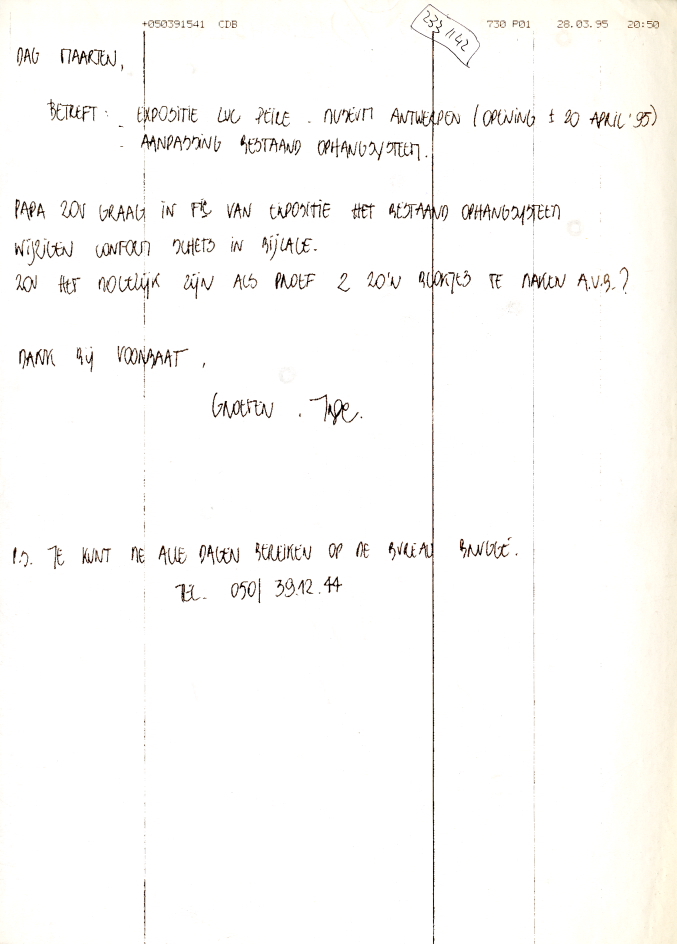 +050391541 CDB 730 P01 28.03.95 20:50
233/142
DAG MAARTEN,
BETREFT : - EXPOSITIE LUC PEIRE - MUSEUM ANTWERPEN (OPENING ± 20 APRIL '95)
- AANPASSING BESTAAND OPHANGSYSTEEM.
PAPA ZOU GRAAG IN FIE VAN EXPOSITIE HET BESTAAND OPHANGSYSTEEM
WIJZIGEN CONFORM SCHETS IN BIJLAGE.
ZOU HET MOGELIJK ZIJN ALS PROEF 2 ZO'N BLOKJES TE MAKEN A.U.B.?
DANK BIJ VOORBAAT,
GROETEN .
P.S. JE KUNT ME ALLE DAGEN BEREIKEN OP DE BUREAU BRUGGE.
TEL. 050/ 39.12.44